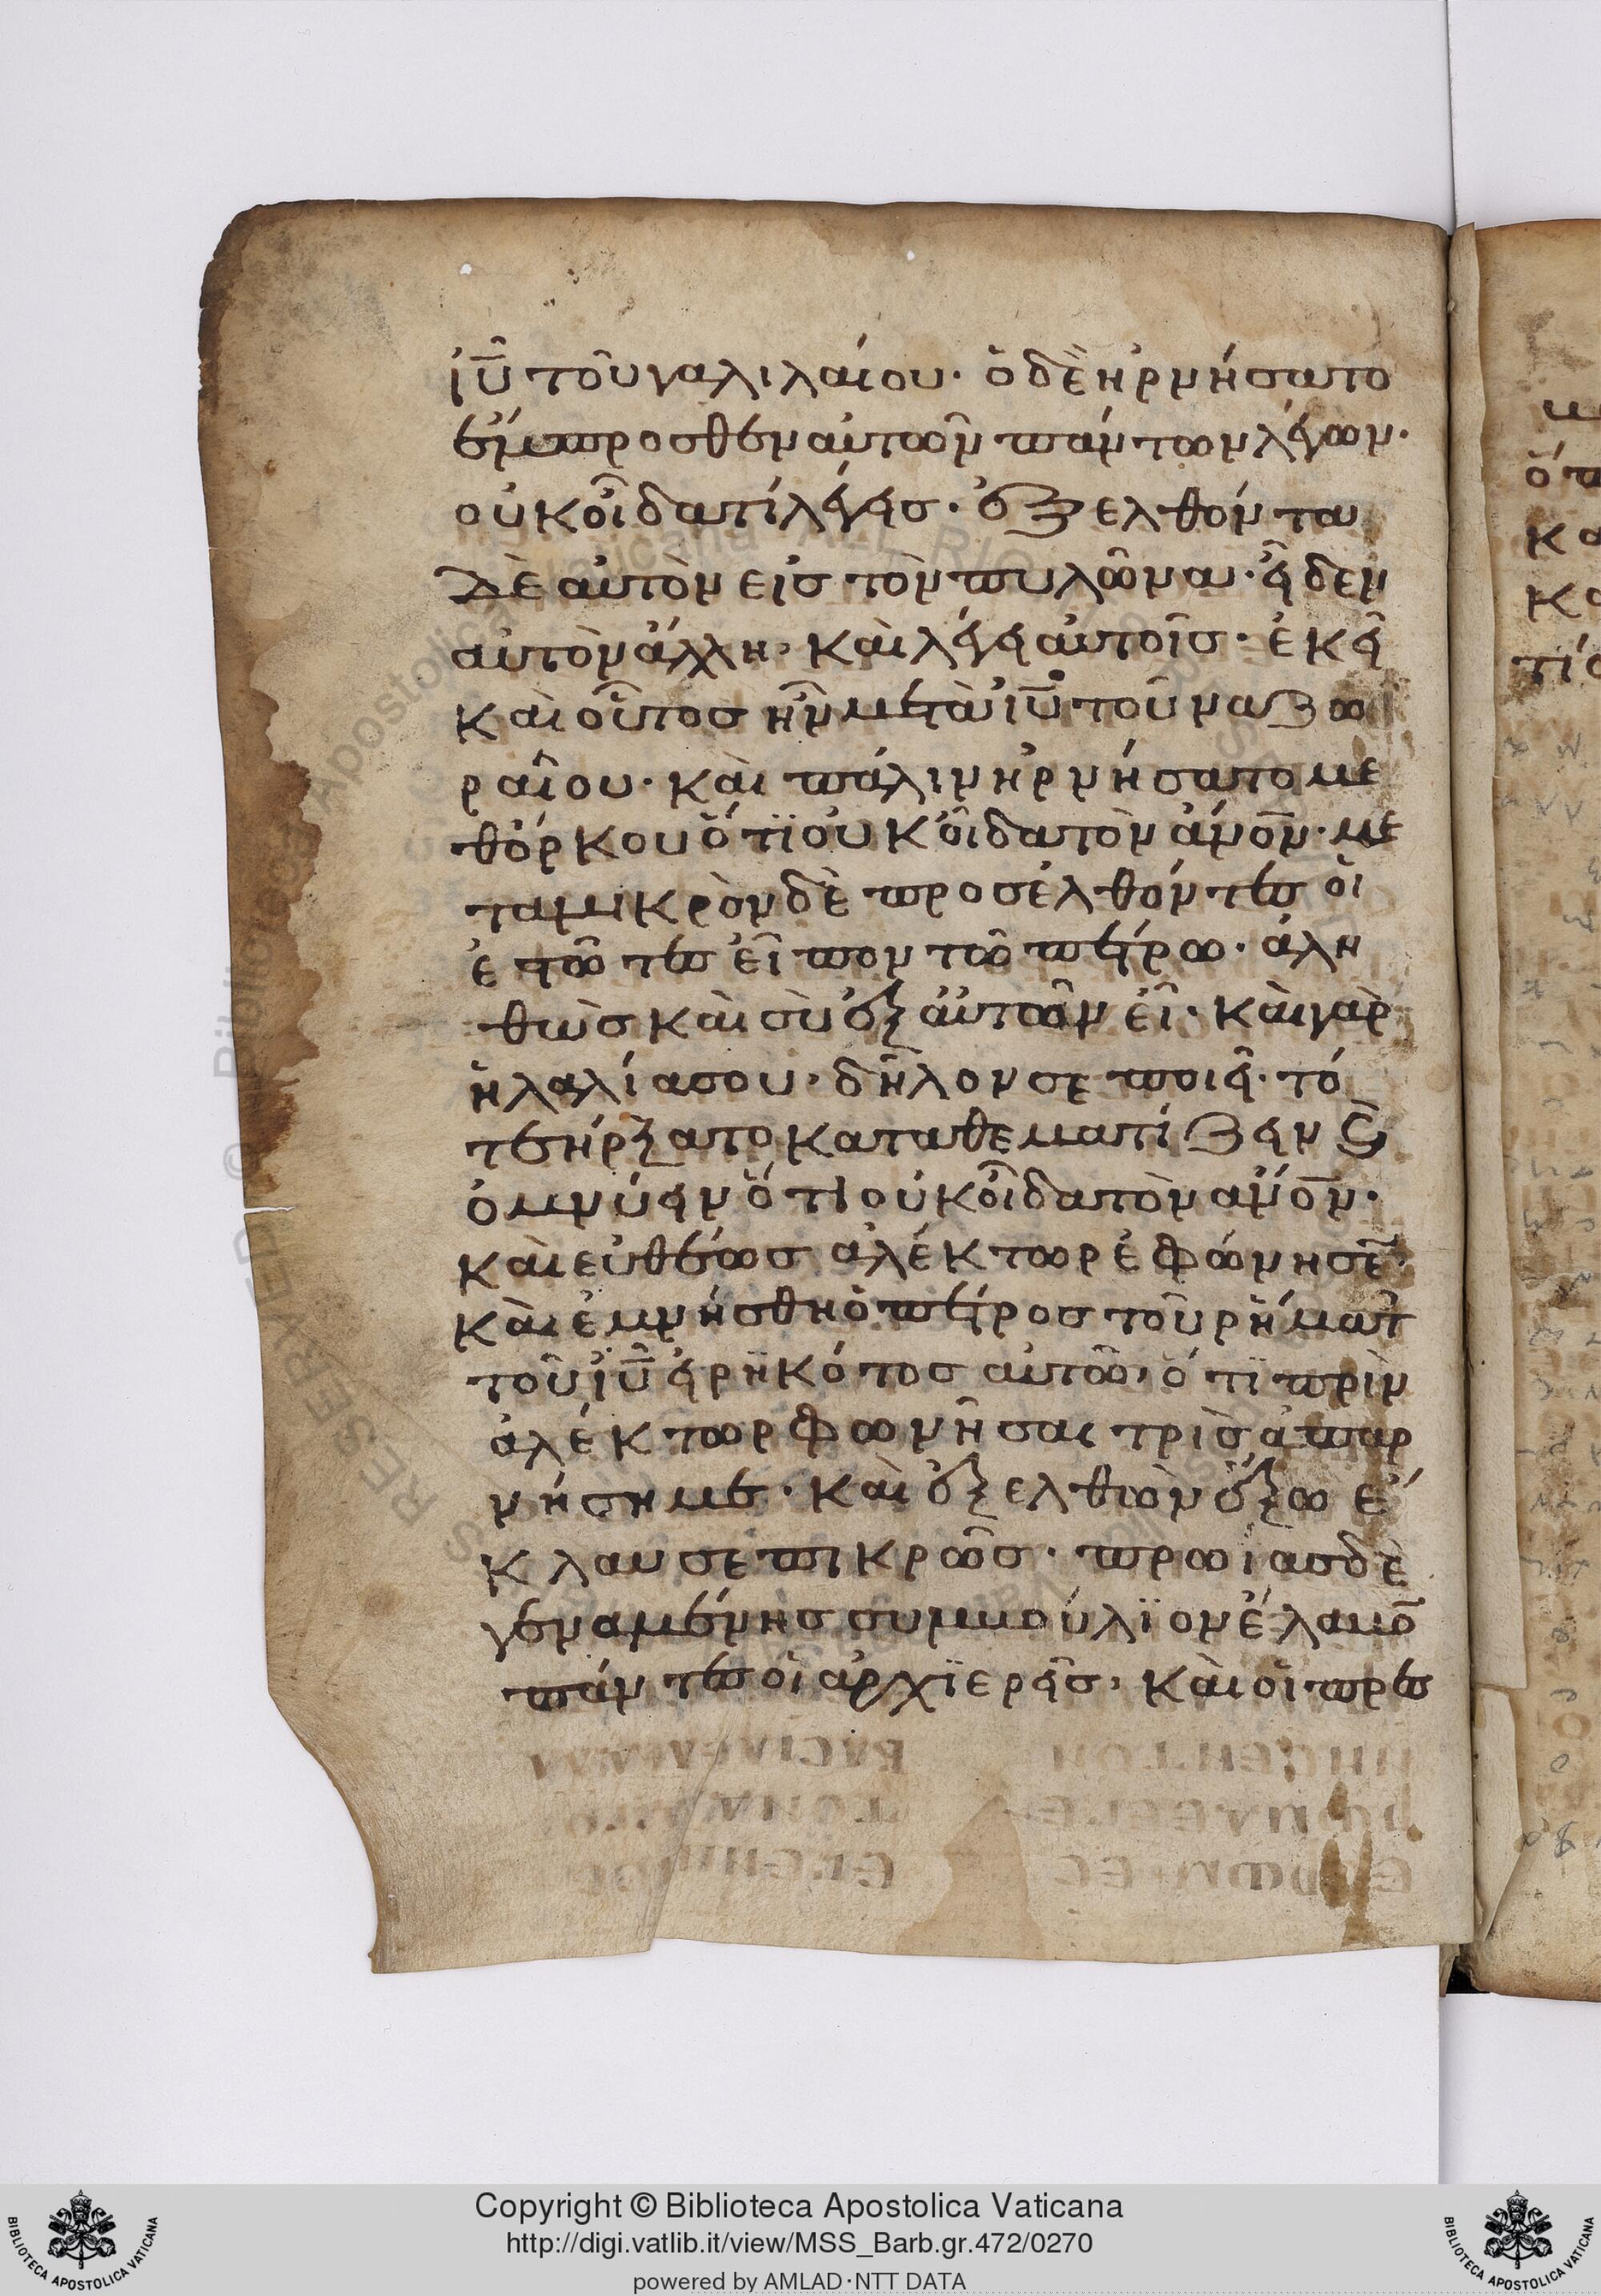 ἰῦ τοῦ γαλιλαίου· ὁ δὲ ἠρνήσατο
ἔμπροσθεν αὐτῶν πάντων λέγων·
οὐκ οἶδα τί λέγεις· ἐξελθόντα
δὲ αὐτὸν εἰς τὸν πυλῶνα· εἶδεν
αὐτὸν ἄλλη· καὶ λέγει αὐτοῖς· ἐκεῖ
καὶ οὗτος ἦν μετὰ ἰῦ τοῦ ναζω
ραίου· καὶ πάλιν ἠρνήσατο με
θόρκου ὅτϊ οὐκ οἶδα τὸν ἄνον· με
τα μικρὸν δὲ προσέλθόντες οἱ
ἑστῶτες εἶπον τῶ πέτρω· ἀλη
θῶς καὶ σὺ ἐξ αὐτῶν εἶ· καὶ γὰρ
ἡ λαλία σου· δῆλον σε ποιεῖ· τό
τε ἤρξατο καταθεματίζειν ϗ
ὀμνύειν ὅτι οὐκ οἶδα τὸν ἄνον·
καὶ εὐθέως ἀλέκτωρ ἐφώνησε·
καὶ ἐμνήσθη ὁ πέτρος τοῦ ῥήματ
τοῦ ἰῦ εἰρηκότος αὐτῶ· ὅτϊ πρὶν
ἀλέκτωρ φωνῆσαι τρὶς ἀπαρ
νήση με· καὶ ἐξελθὼν ἔξω ἔ
κλαυσε πικρῶς· πρωΐας δὲ
γεναμένης συμβούλϊον ἔλαβο
πάντες οἱ ἀρχϊερεῖς· καὶ οἱ πρεσ
http://digi.vatlib.it/view/MSS_Barb.gr.472/0270
Copyright © Biblioteca Apostolica Vaticana
powered by AMLAD·NTT DATA
BIBLIOTECA APOSTOLICA VATICANA
BIBLIOTECA APOSTOLICA VATICANA